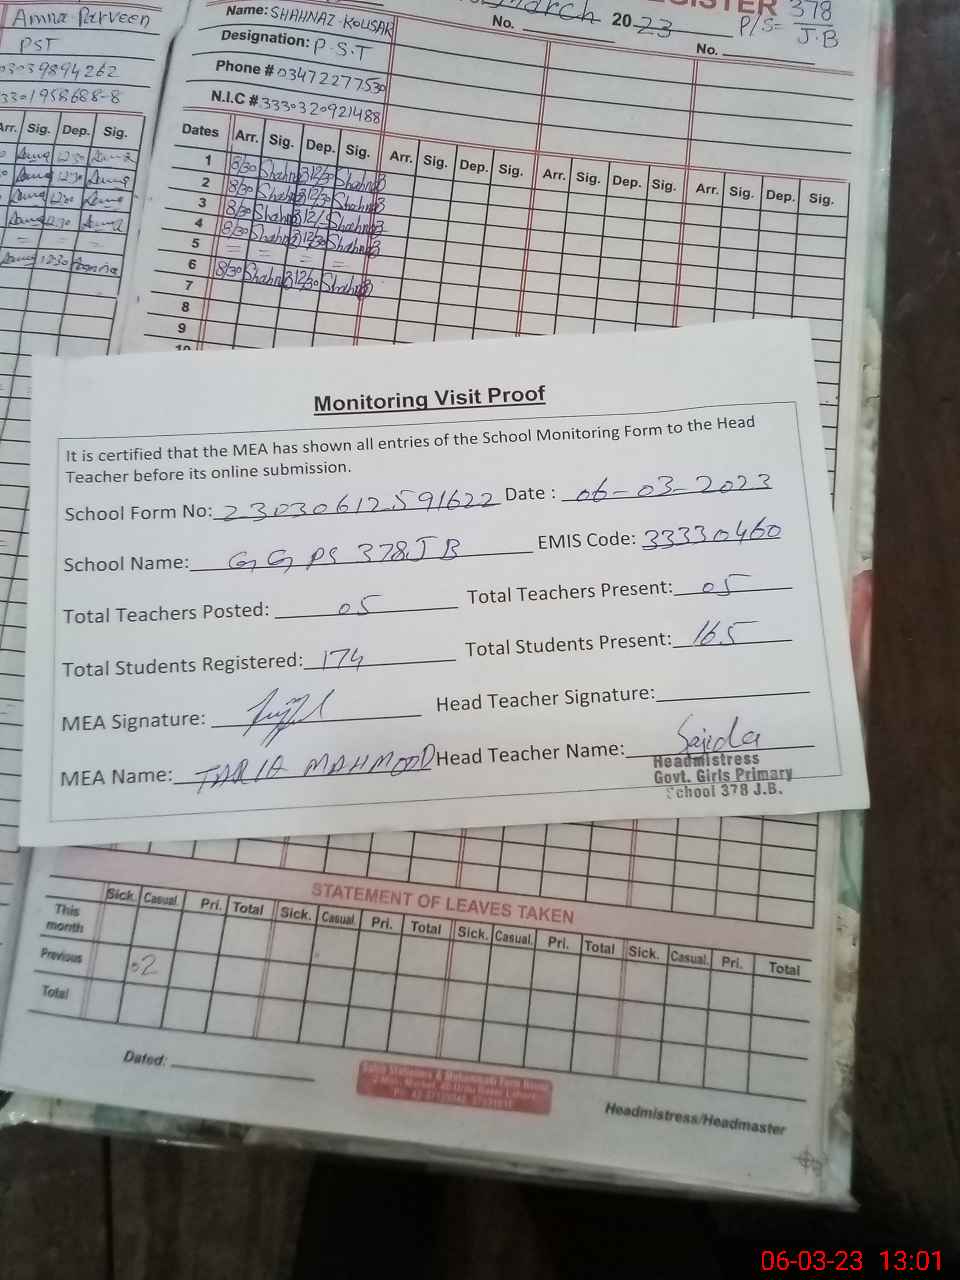 Amna Parveen
PST
03039894262
3301958688-8
Arr. Sig. Dep. Sig.
March 2023 P/S= 378 J.B
No.
No.
Name: SHAHNAZ-KOUSAR
Designation: P.S.T
Phone # 03472277530
N.I.C # 3330320921488
Dates Arr. Sig. Dep. Sig. Arr. Sig. Dep. Sig. Arr. Sig. Dep. Sig. Arr. Sig. Dep. Sig.
1 8/30 Shahnaz 12/30 Shahnaz
2 8/30 Shahnaz 12/30 Shahnaz
3 8/30 Shahnaz Shahnaz
4 8/30 Shahnaz 12/30 Shahnaz
5 = = = =
6 8/30 Shahnaz 12/30 Shahnaz
7
8
9
10
Monitoring Visit Proof
It is certified that the MEA has shown all entries of the School Monitoring Form to the Head
Teacher before its online submission.
School Form No: 23030612591622 Date : 06-03-2023
School Name: GGPS 378JB EMIS Code: 33330460
Total Teachers Posted: 05 Total Teachers Present: 05
Total Students Registered: 174 Total Students Present: 165
MEA Signature: Head Teacher Signature:
MEA Name: TARIQ MAHMOOD Head Teacher Name: Sajida
Headmistress
Govt. Girls Primary
School 378 J.B.
STATEMENT OF LEAVES TAKEN
Sick. Casual. Pri. Total Sick. Casual. Pri. Total Sick. Casual. Pri. Total Sick. Casual. Pri. Total
This month
Previous 02
Total
Dated:
Headmistress/Headmaster
06-03-23 13:01